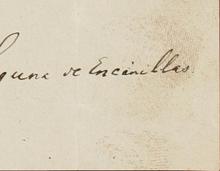 guna de Encinillas